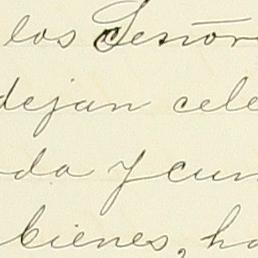 los Señor
dejan cele
da y cum
bienes, ha